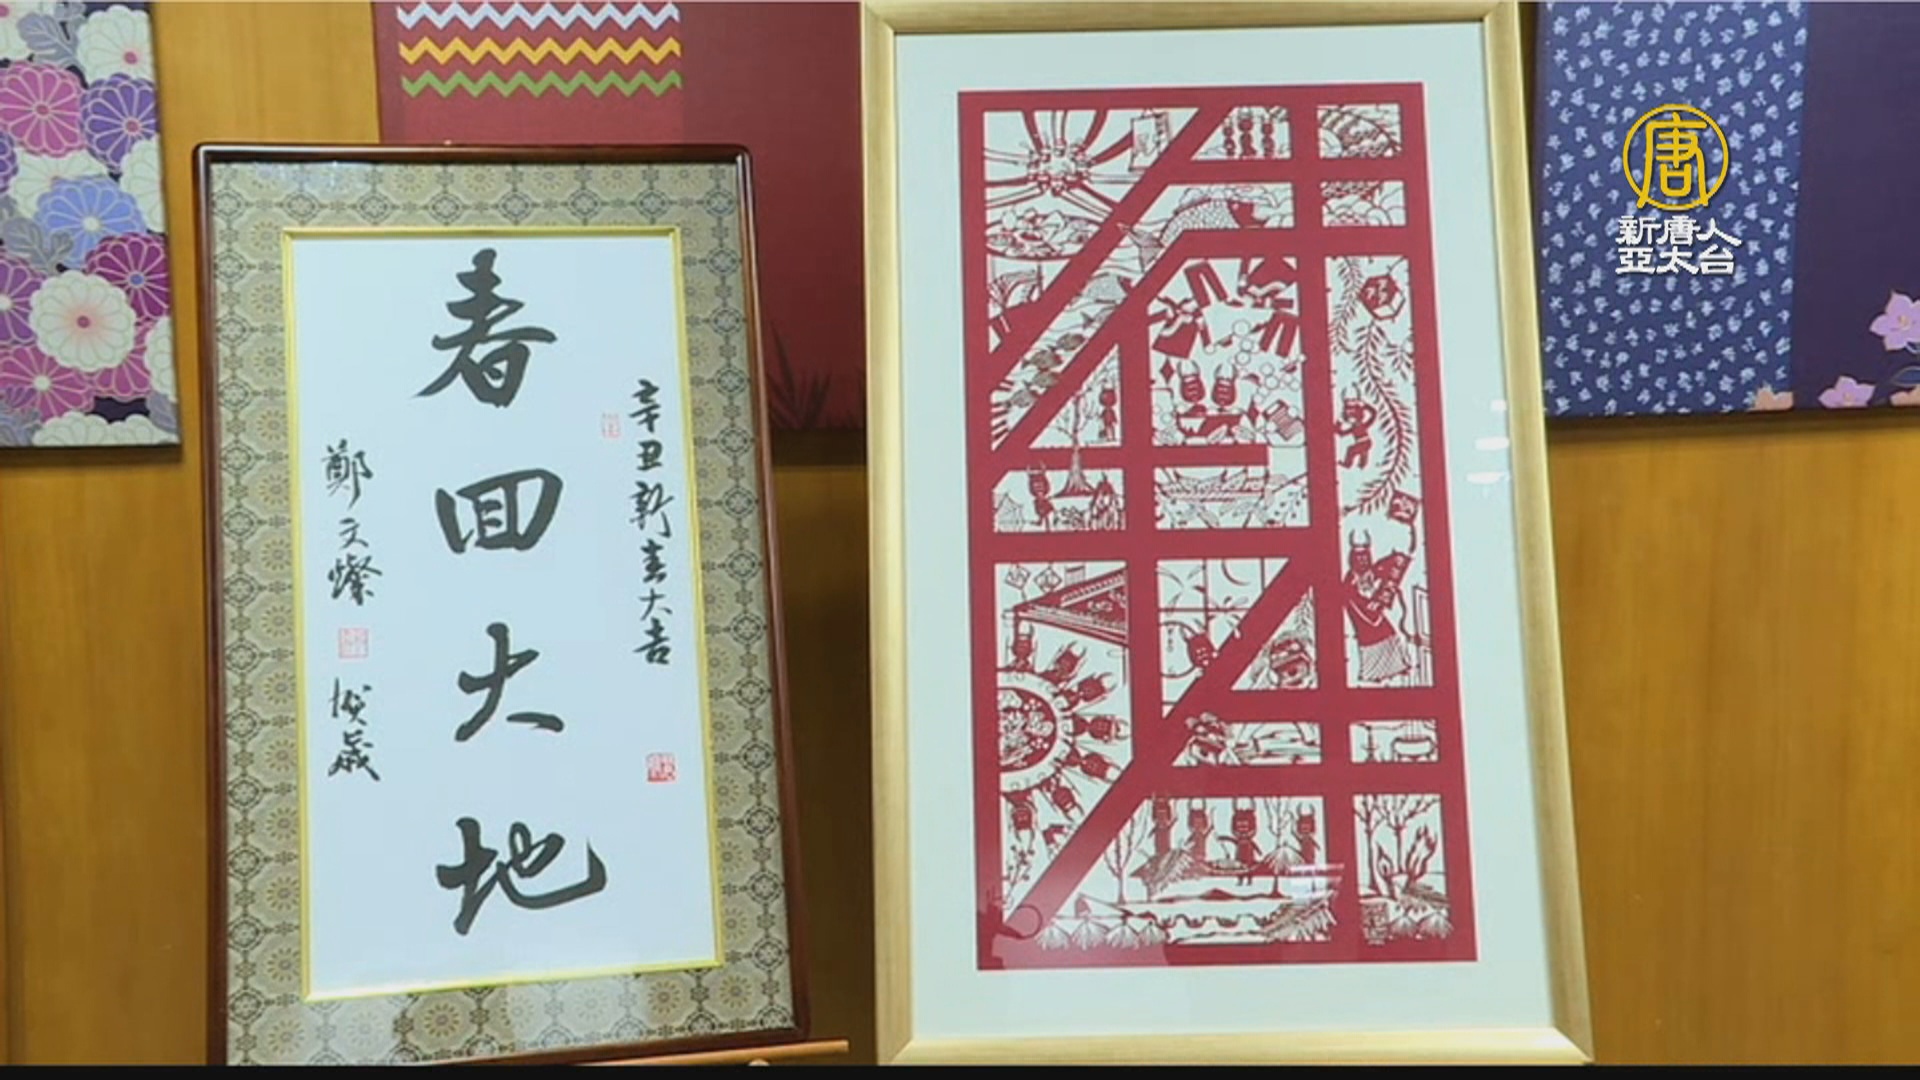 春回大地
辛丑新春大吉
鄭文燦
敬
唐
新唐人
亞太台